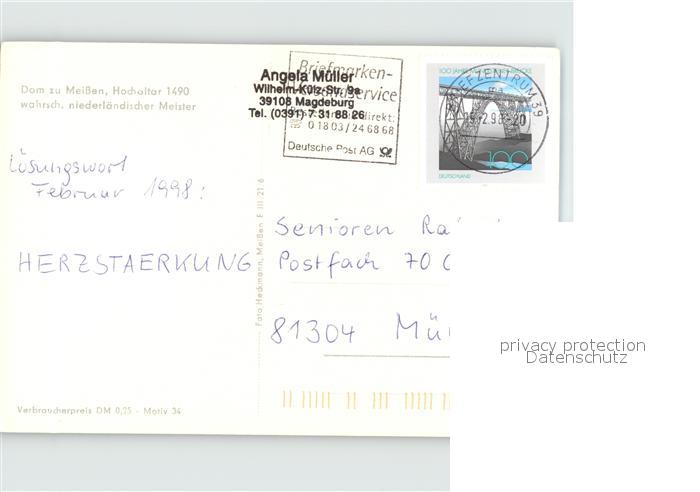 Dom zu Meißen, Hochaltar 1490
wahrsch. niederländischer Meister
Briefmarken-
Angela Müller
Wilhelm-Külz-Str. 9a
39108 Magdeburg
Tel. (0391) 7 31 88 26
direkt:
0 18 03 / 24 68 68
Deutsche Post AG
100 JAHRE
BRIEFZENTRUM 39
100
DEUTSCHLAND
Lösungswort
Februar 1998:
HERZSTAERKUNG
Senioren
Postfach 70
81304
Foto Heckmann, Meißen F III/21 6
Verbraucherpreis DM 0,25 - Motiv 34
privacy protection
Datenschutz